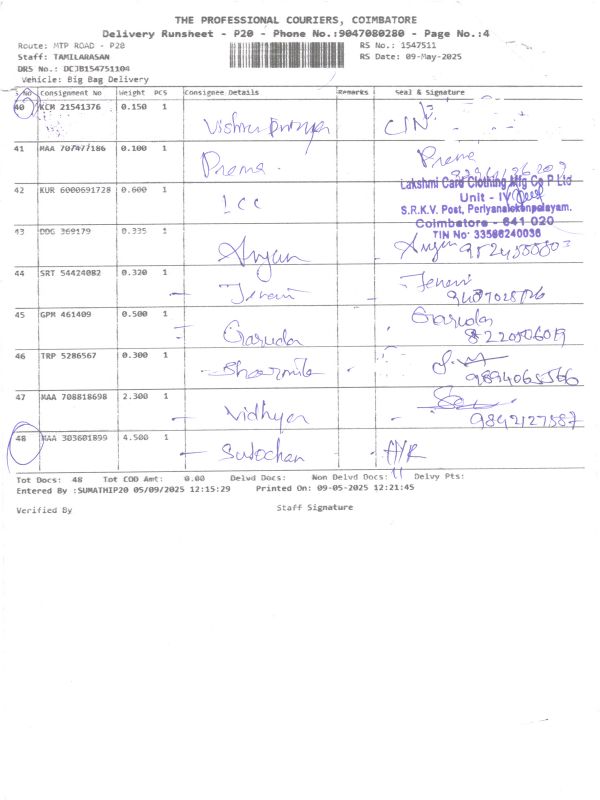 THE PROFESSIONAL COURIERS, COIMBATORE
Delivery Runsheet - P20 - Phone No.:9047080280 - Page No.:4
Route: MTP ROAD - P20 RS No.: 1547511
Staff: TAMILARASAN RS Date: 09-May-2025
DRS No.: DCJB154751104
Vehicle: Big Bag Delivery
S.No Consignment No Weight PCS Consignee Details Remarks Seal & Signature
40 KCM 21541376 0.150 1
41 MAA 707477186 0.100 1 Prema Prema
42 KUR 6000691728 0.600 1 LCC
Lakshmi Card Clothing Mfg Co P Ltd
Unit - IV
S.R.K.V. Post, Periyanaickenpalayam.
Coimbatore - 641 020
TIN No: 33586240036
43 DDG 369179 0.335 1 Arjun Arjun
44 SRT 54424082 0.320 1
45 GPM 461409 0.500 1 Garuda Garuda
46 TRP 5286567 0.300 1 Sharmila 9894065566
47 MAA 708818698 2.300 1 Vidhya 9842127587
48 MAA 303601899 4.500 1
Tot Docs: 48 Tot COD Amt: 0.00 Delvd Docs: Non Delvd Docs: Delvy Pts:
Entered By :SUMATHIP20 05/09/2025 12:15:29 Printed On: 09-05-2025 12:21:45
Verified By Staff Signature